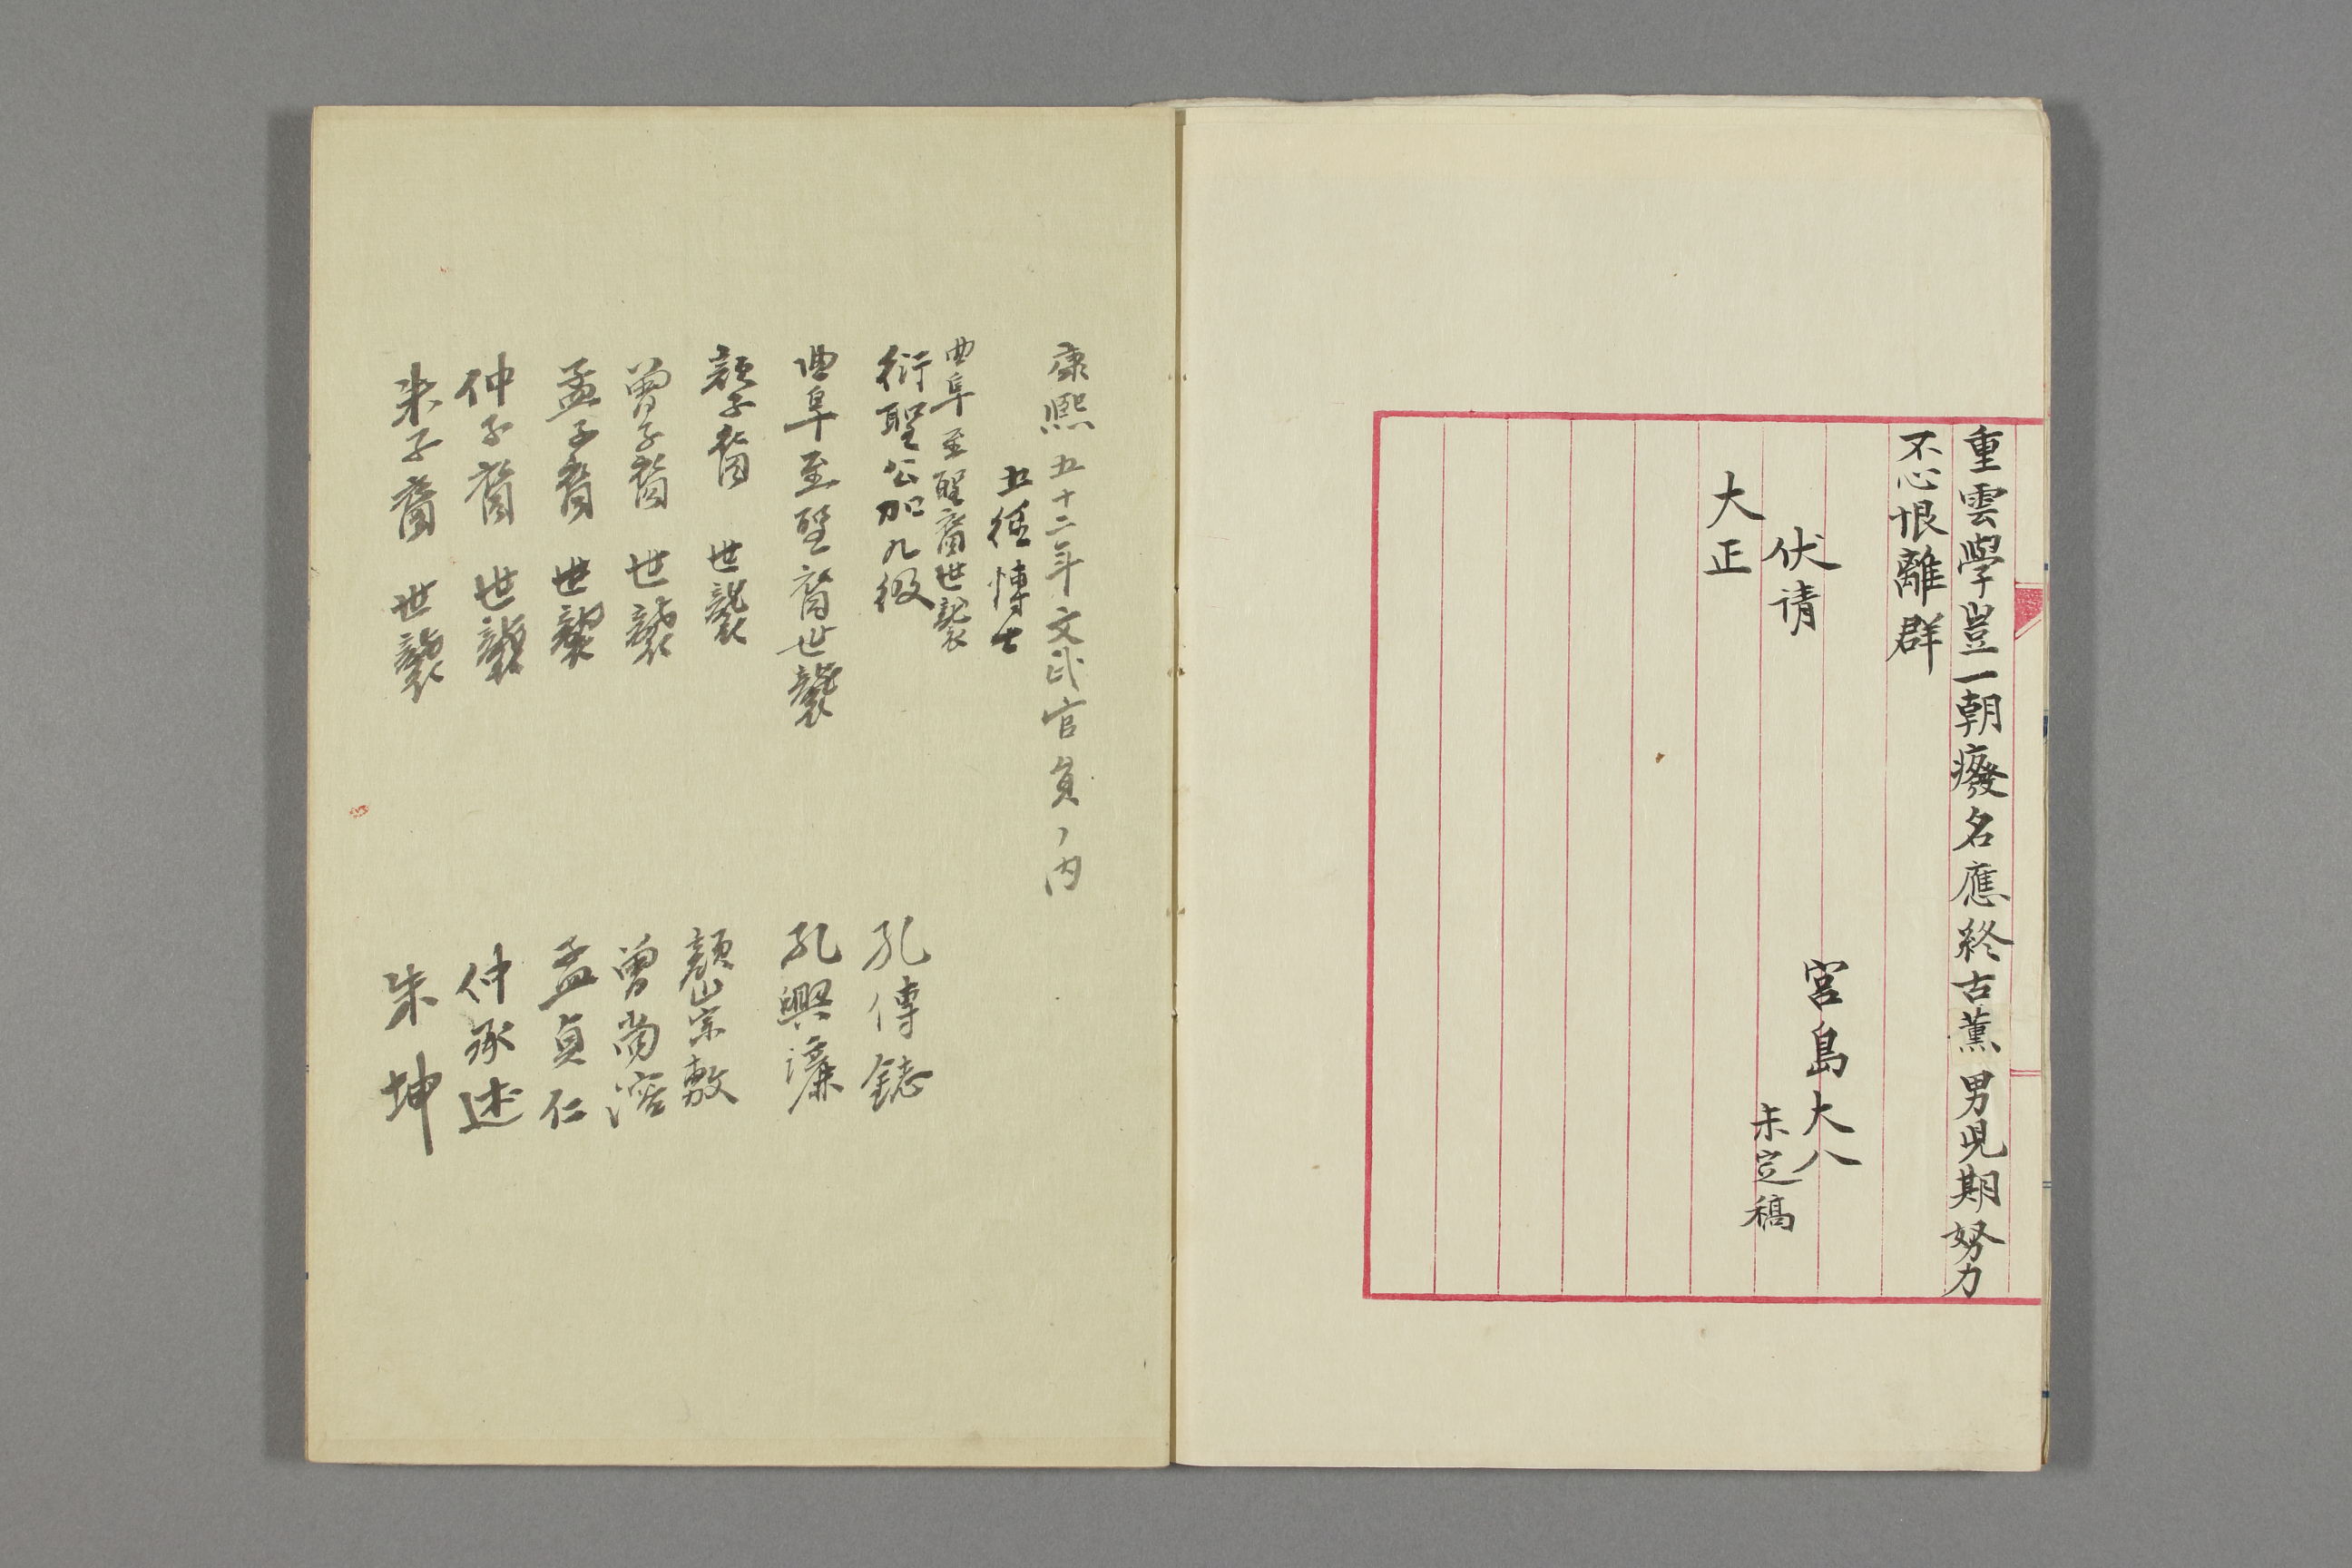 重雲學豈一朝癈名應終古薫男児期努力
不心恨離群
宮島大八
未定稿
伏请
大正
康熙五十二年文武官員ノ内
五經博士
曲阜至聖裔世襲
衍聖公加九级 孔傳鋕
曲阜至聖裔世襲 孔興濂
顏子裔 世襲 顏崇敷
曾子裔 世襲 曾尚溶
孟子裔 世襲 孟貞仁
仲子裔 世襲 仲承述
朱子裔 世襲 朱坤